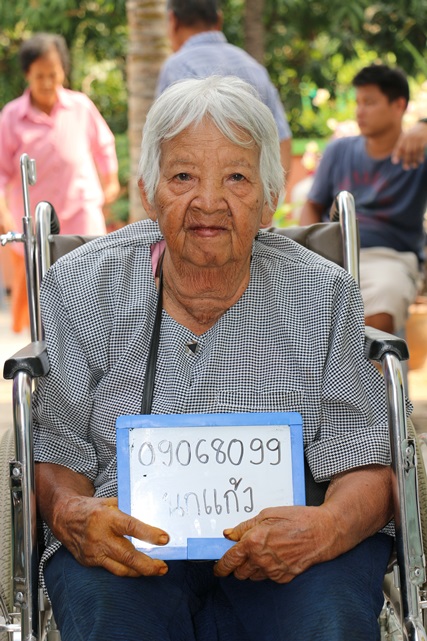 09068099
นกแก้ว